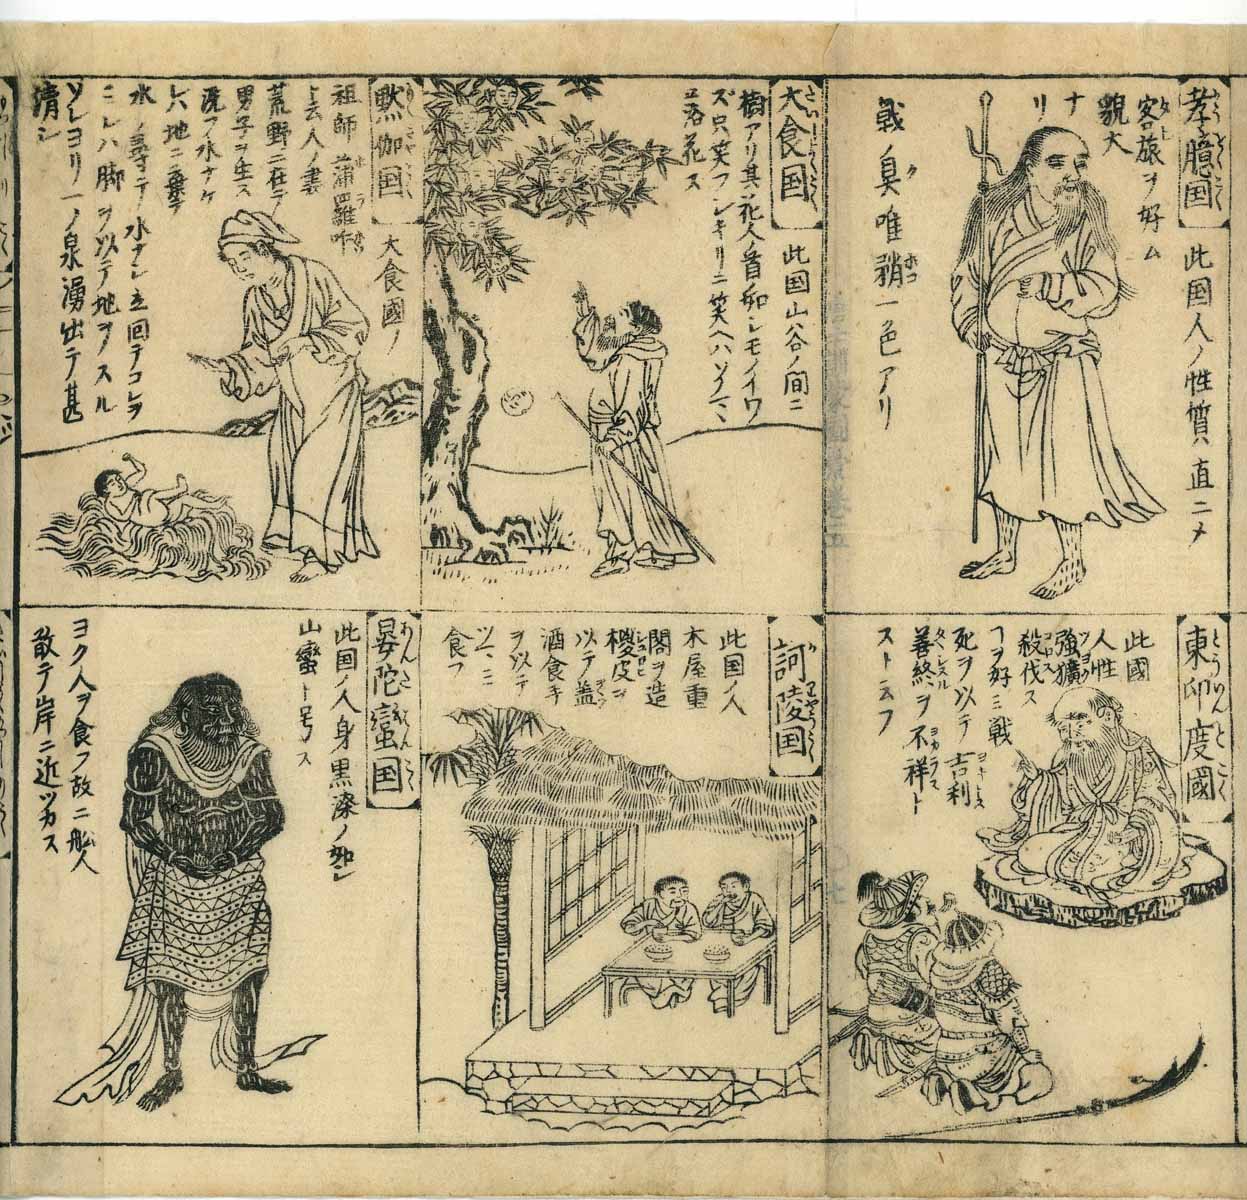 孝臆国
此国人ノ性質直ニメ
客旅ヲ好ム
貌大
ナ
リ
戦ノ具唯矟一色アリ
大食国
此国山谷ノ間ニ
樹アリ其花人ノ首ノ如シモノイワ
ズ只笑フシキリニ笑ヘハソノマヽ
落花ス
黙伽国
大食國ノ
祖師蒲羅吽
ト云人ノ妻
荒野ニ在テ
男子ヲ生ス
洗フ水ナケ
レハ地ニ棄テ
水ノ尋テ水ナシ立回テコレヲ
ミレハ脚ヲ以テ地ヲスル
ソレヨリ一ノ泉湧出テ甚
清シ
東印度國
此國
人性
強獷
殺伐ス
ヿヲ好ミ戦
死ヲ以テ吉利
善終ヲ不祥ト
スト云フ
訶陵国
此国ノ人
木屋重
閣ヲ造
椶皮ヲ
以テ蓋
酒食手
ヲ以テ
ツヽミ
食フ
晏陀蛮国
此国ノ人身黒漆ノ如シ
山蠻ト号ス
ヨク人ヲ食フ故ニ舩人
敢テ岸ニ近ツカス